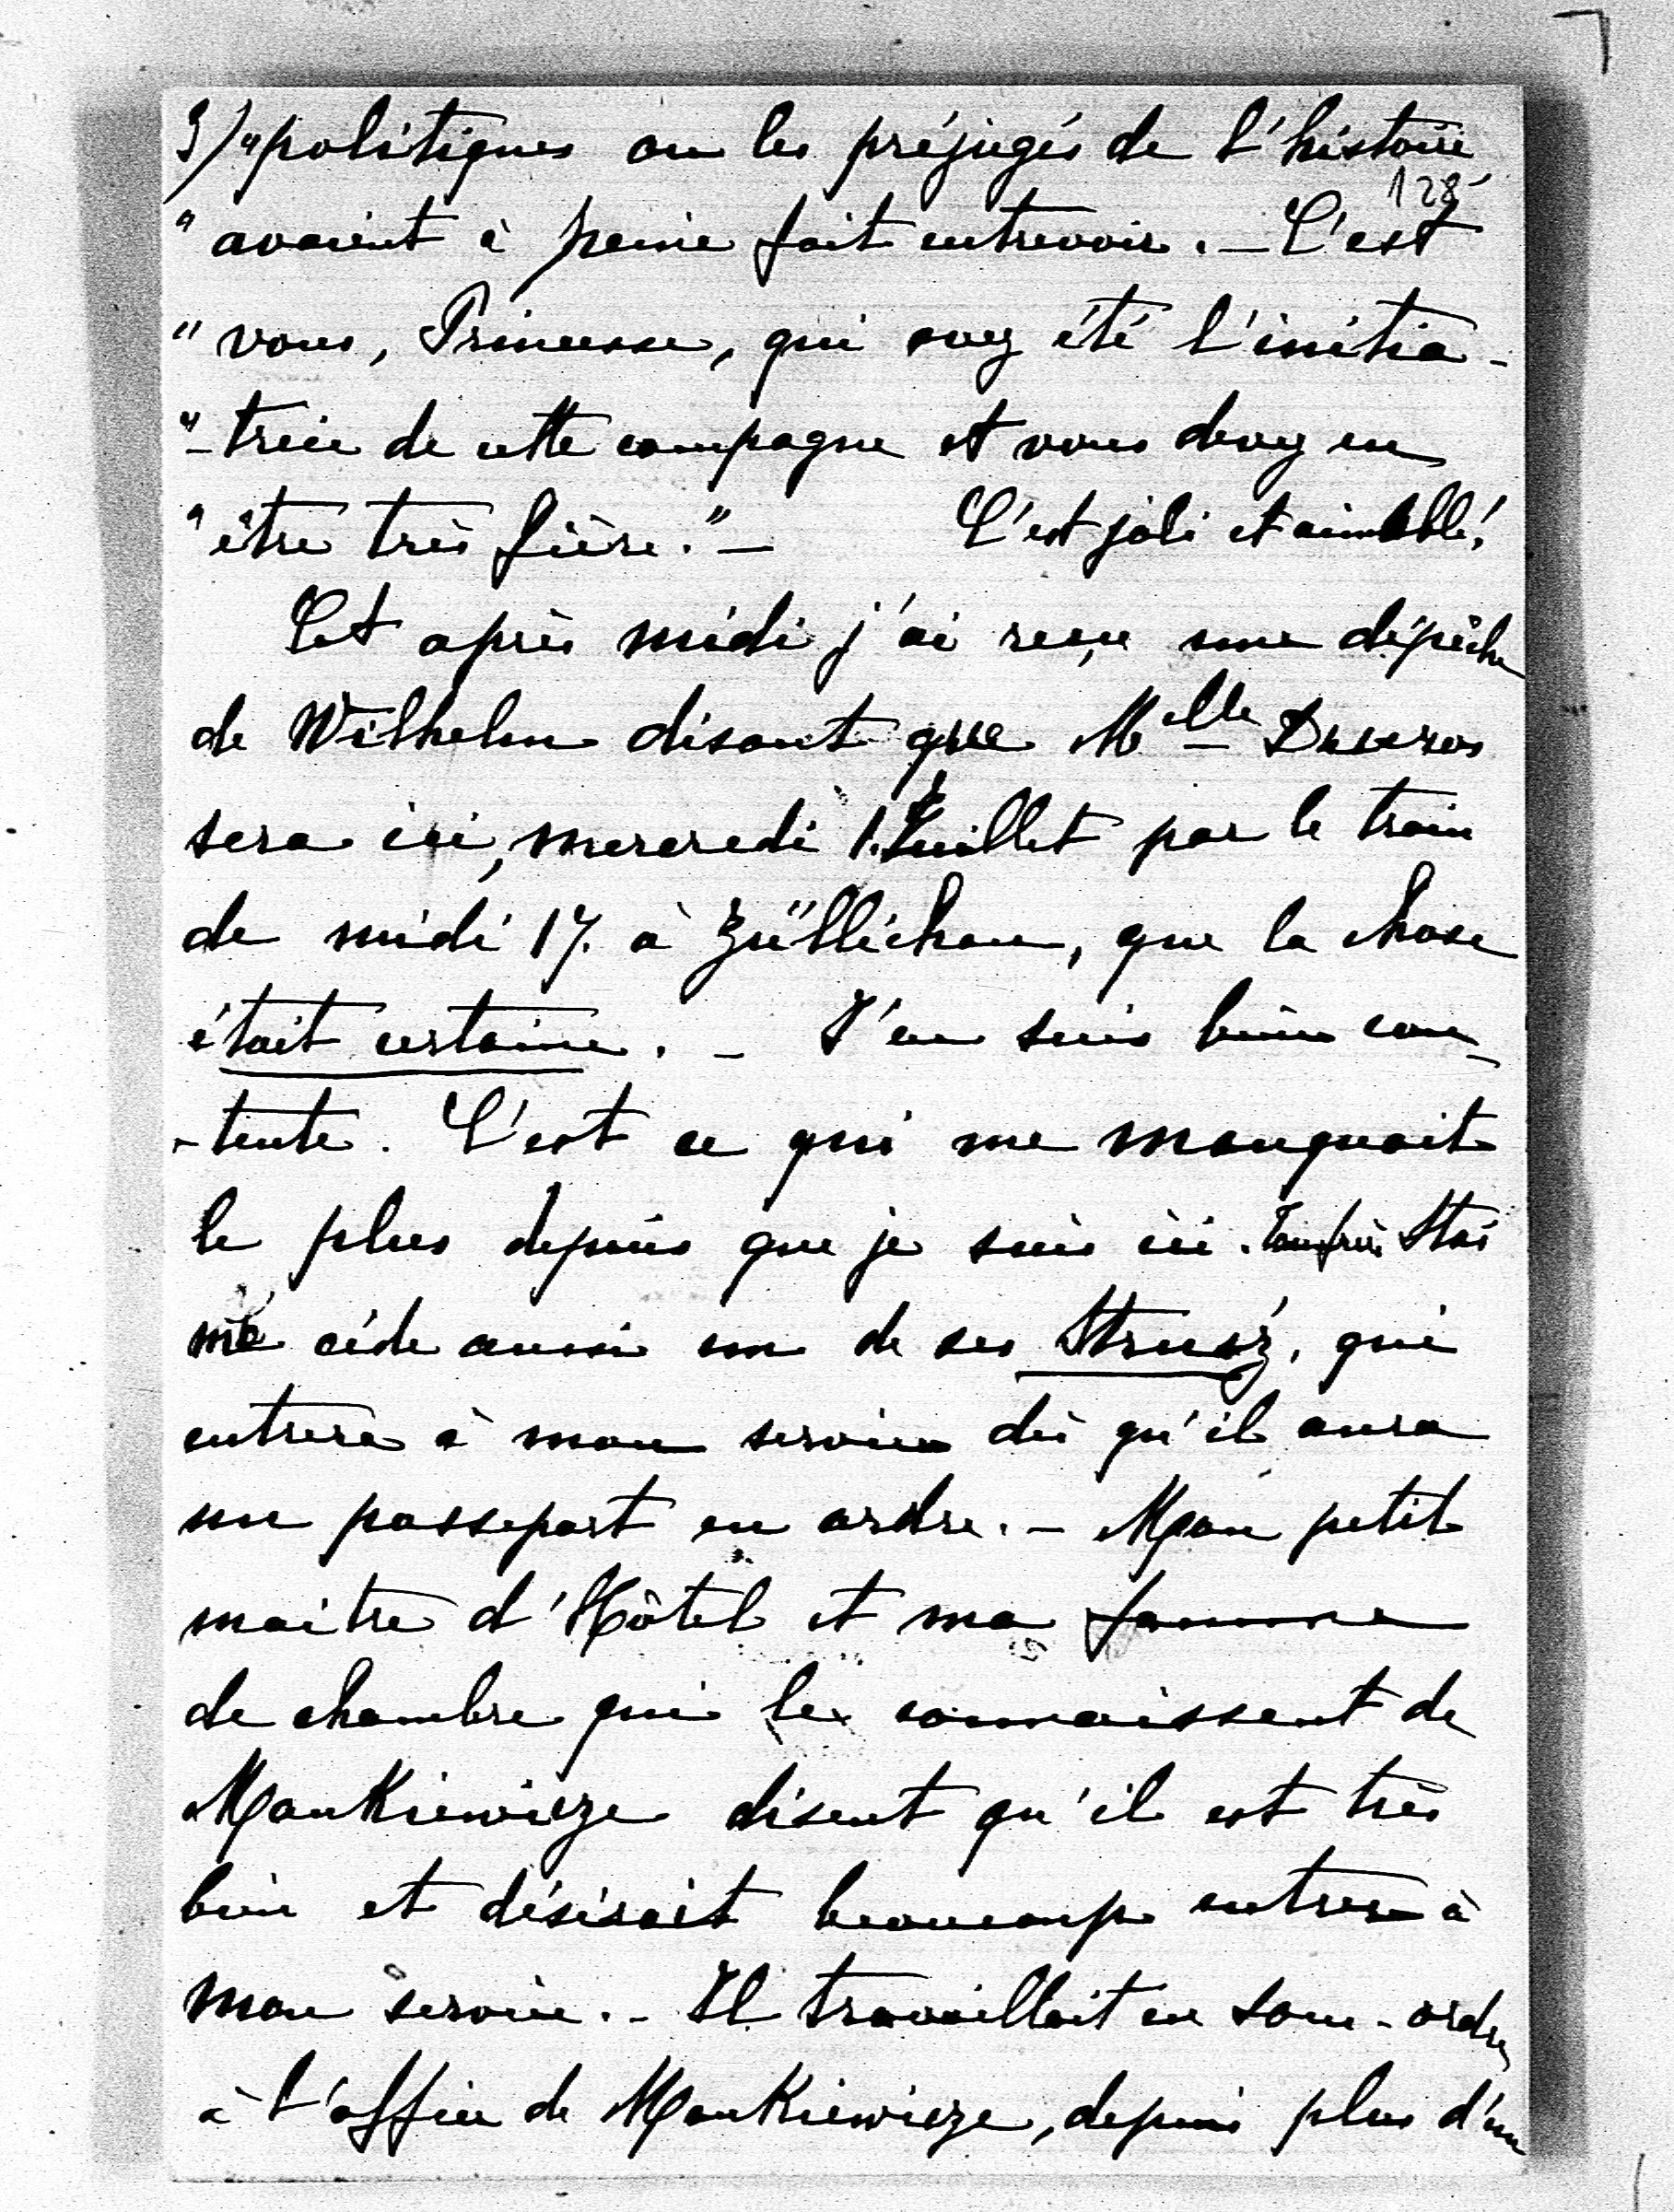 3/ "politiques ou les préjugés de l'histoire
128
" avaient à peine fait entrevoir. — C'est
" vous, Princesse, qui avez été l'initia-
"-trice de cette campagne et vous devez en
" être très fière." — C'est joli et aimable!
Cet après midi j'ai reçu une dépêche
de Wilhelm disant que Mlle Ducros
sera ici, mercredi 1. Juillet par le train
de midi 17. à Züllichau, que la chose
était certaine. — J'en suis bien con-
-tente. C'est ce qui me manquait
le plus depuis que je suis ici.
me cède aussi un de ses Strusź, qui
entrera à mon service dès qu'il aura
un passeport en ordre. — Mon petit
maitre d'Hôtel et ma femme
de chambre qui le connaissent de
Mankiewicze disent qu'il est très
bien et désirait beaucoup entrer à
mon service. — Il travaillait en sous-ordre
à l'office de Mankiewicze, depuis plus d'un